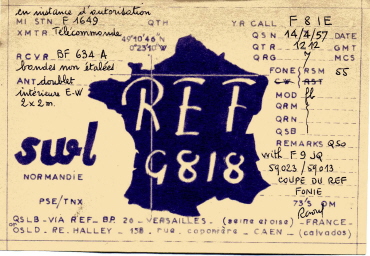 en instance d'autorisation
MI STN F 1649 QTH YR CALL F 8 IE
XMTR Télécommande 49°10'46" N QSO 14/4/57 DATE
0°23'10 W QTR 1212 GMT
RCVR BF 634 A QRG 7 MCS
bandes non étalées FONE RSM 55
CW RST
ANT doublet MOD ff
intérieure E-W QRM
2 x 2 m. QRN
QSB
REF
REMARKS QSO
swl G818 with F 9 JQ
59023 / 59013
NORMANDIE COUPE DU REF
FONIE
PSE/TNX 73'S PM
QSLB - VIA REF - BP. 20 - VERSAILLES - (seine et oise) - FRANCE -
QSLD - RE. HALLEY - 158, rue caponière - CAEN - (calvados)